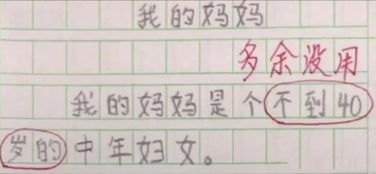 我的妈妈
多余没用
我的妈妈是个不到40
岁的中年妇女。